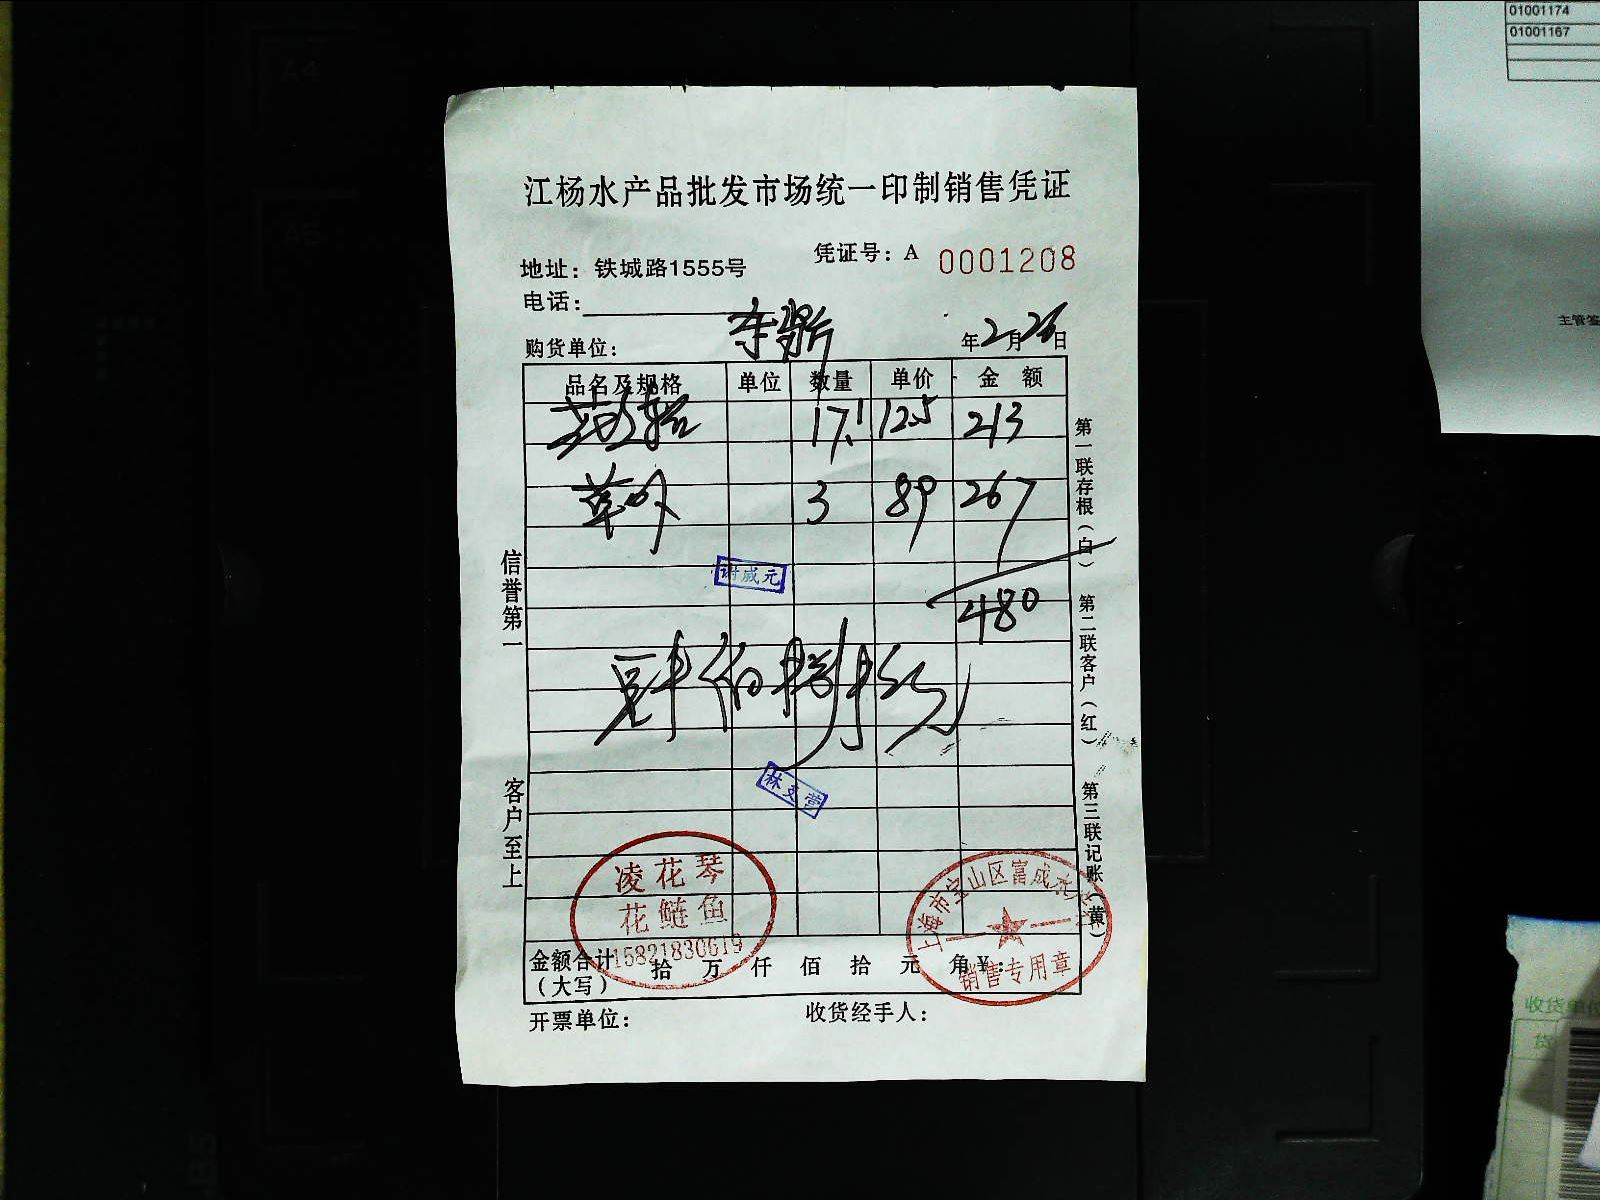 01001174
01001167
主管签
江杨水产品批发市场统一印制销售凭证
凭证号：A 0001208
地址：铁城路1555号
电话：
购货单位：
年2月26日
品名及规格 单位 数量 单价 金额
17.1 12.5 213
3 89 267
480
肆佰捌拾元
谢成元
林文营
信誉第一
客户至上
第一联存根（白） 第二联客户（红） 第三联记账（黄）
凌花琴
花鲢鱼
15821830619
上海市宝山区富成水产
销售专用章
金额合计（大写） 拾 万 仟 佰 拾 元 角 ¥：
开票单位： 收货经手人：
收货单位
货